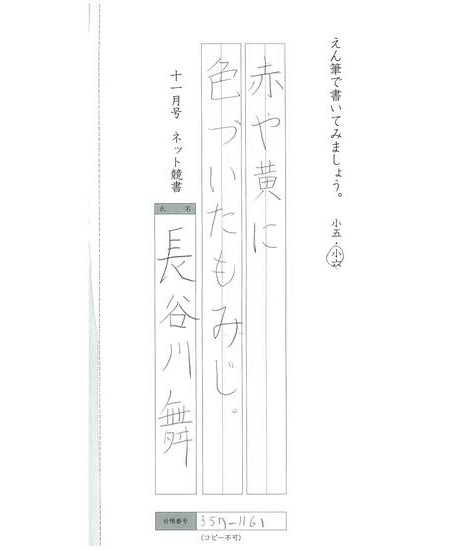 えん筆で書いてみましょう。 小五・小六
赤や黄に
色づいたもみじ。
十一月号 ネット競書
氏名
長谷川舞
台帳番号 357-1161
(コピー不可)